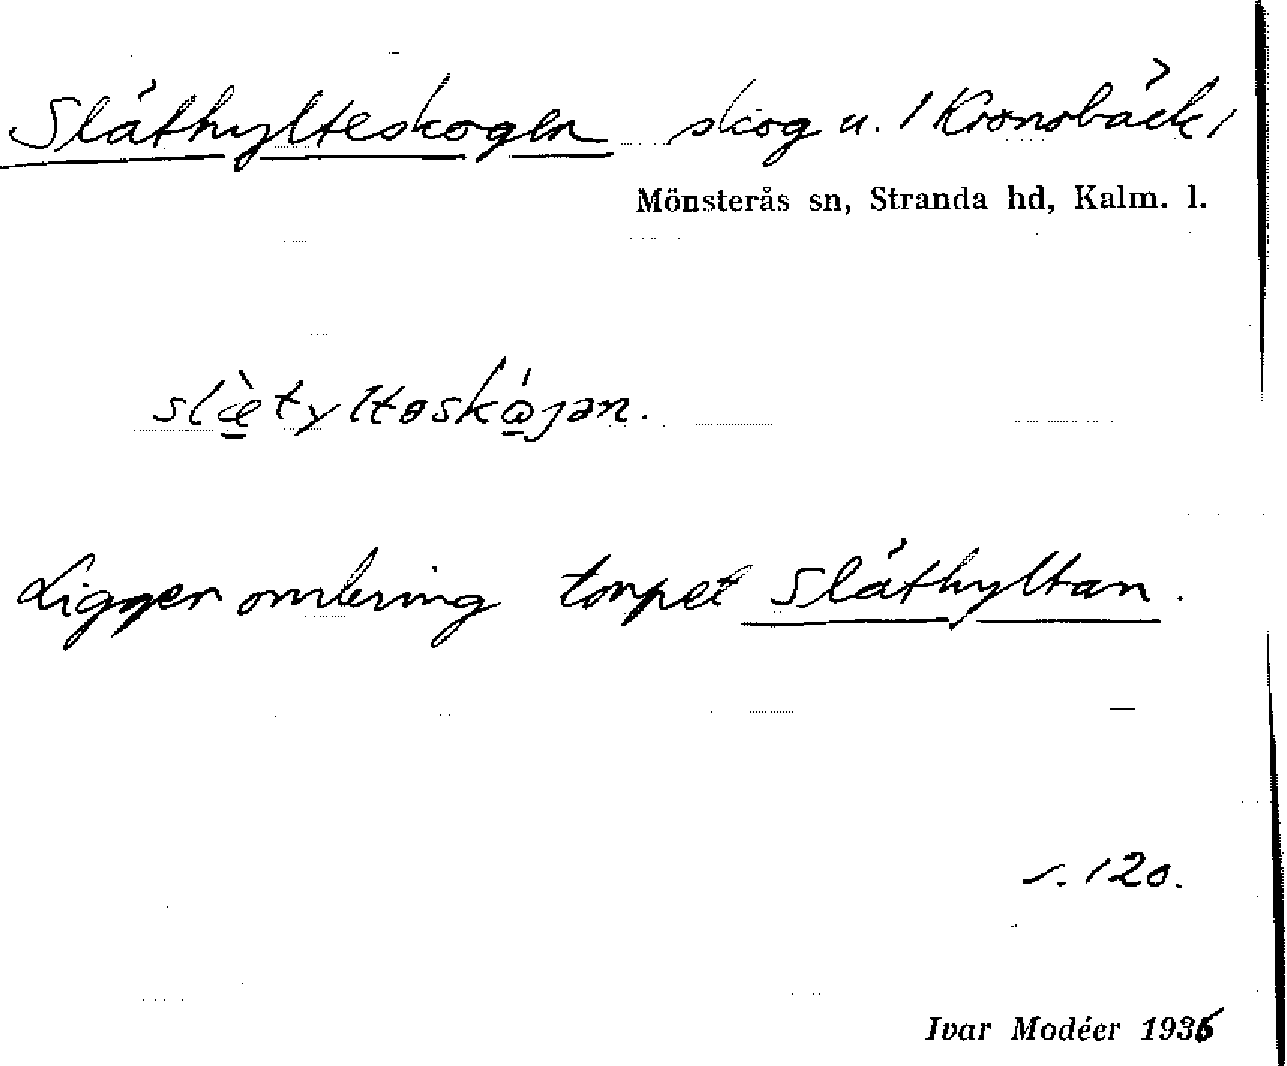 Släthylteskogen skog u. /Kronobäck/
Mönsterås sn, Stranda hd, Kalm. l.
slæ̀tyltəskájən.
Ligger omkring torpet Släthyltan.
s. 120.
Ivar Modéer 1936